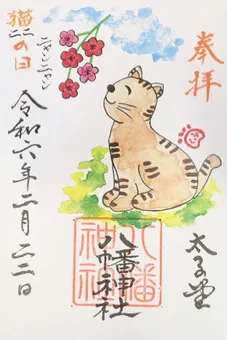 奉拝
太子堂
八幡神社
八幡
神社
ニャンニャン
猫の日
令和六年二月二二日